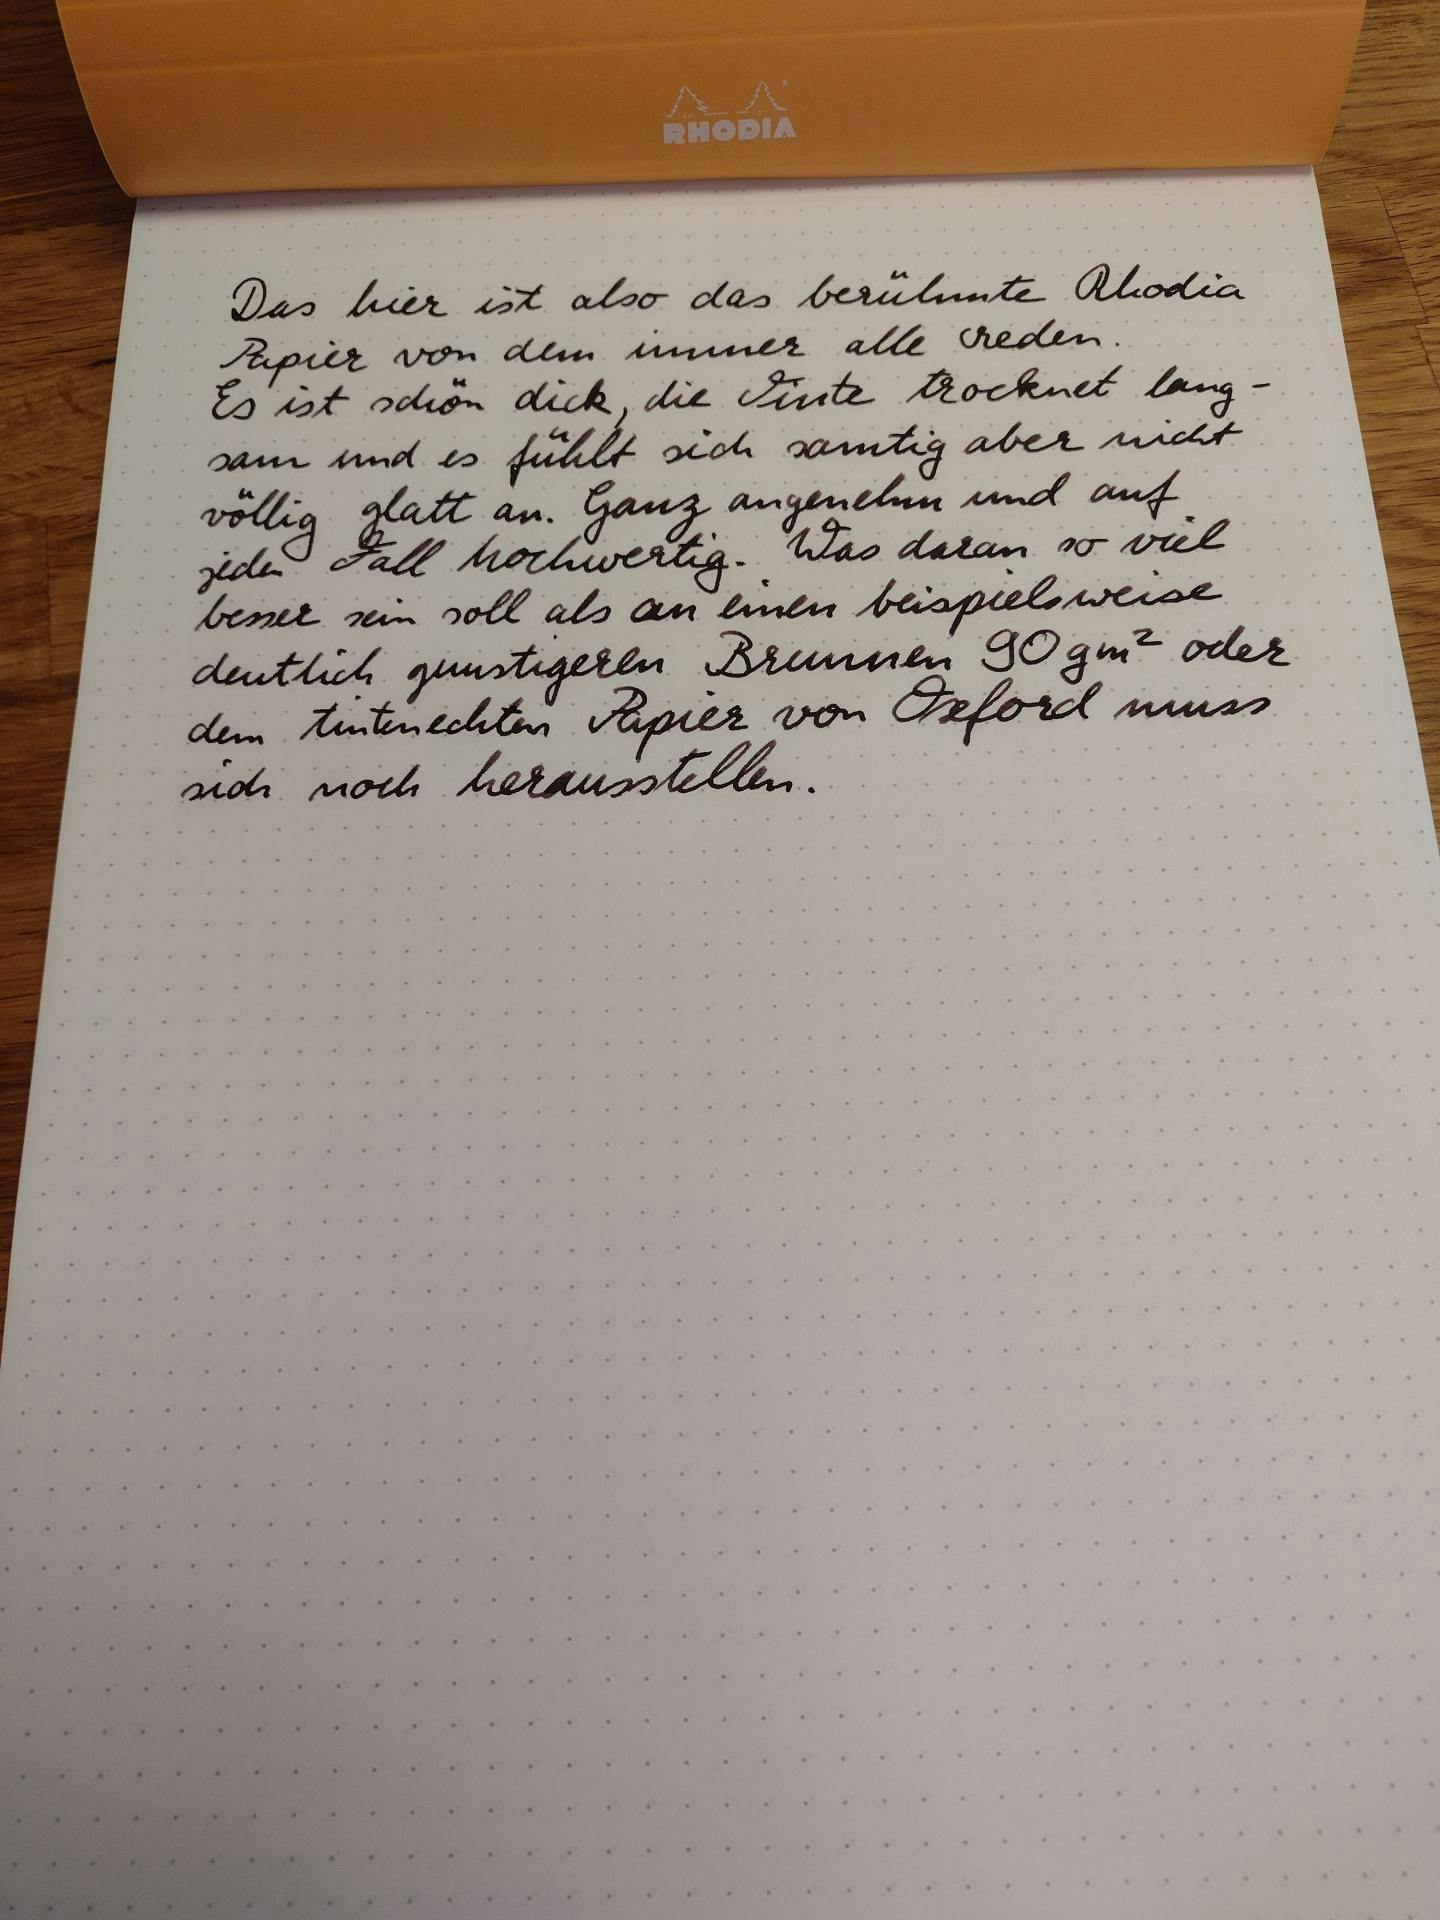 RHODIA
Das hier ist also das berühmte Rhodia
Papier von dem immer alle reden.
Es ist schön dick, die Tinte trocknet lang-
sam und es fühlt sich samtig aber nicht
völlig glatt an. Ganz angenehm und auf
jeden Fall hochwertig. Was daran so viel
besser sein soll als an einen beispielsweise
deutlich gunstigeren Brunnen 90 gm² oder
dem tintenechten Papier von Oxford muss
sich noch herausstellen.